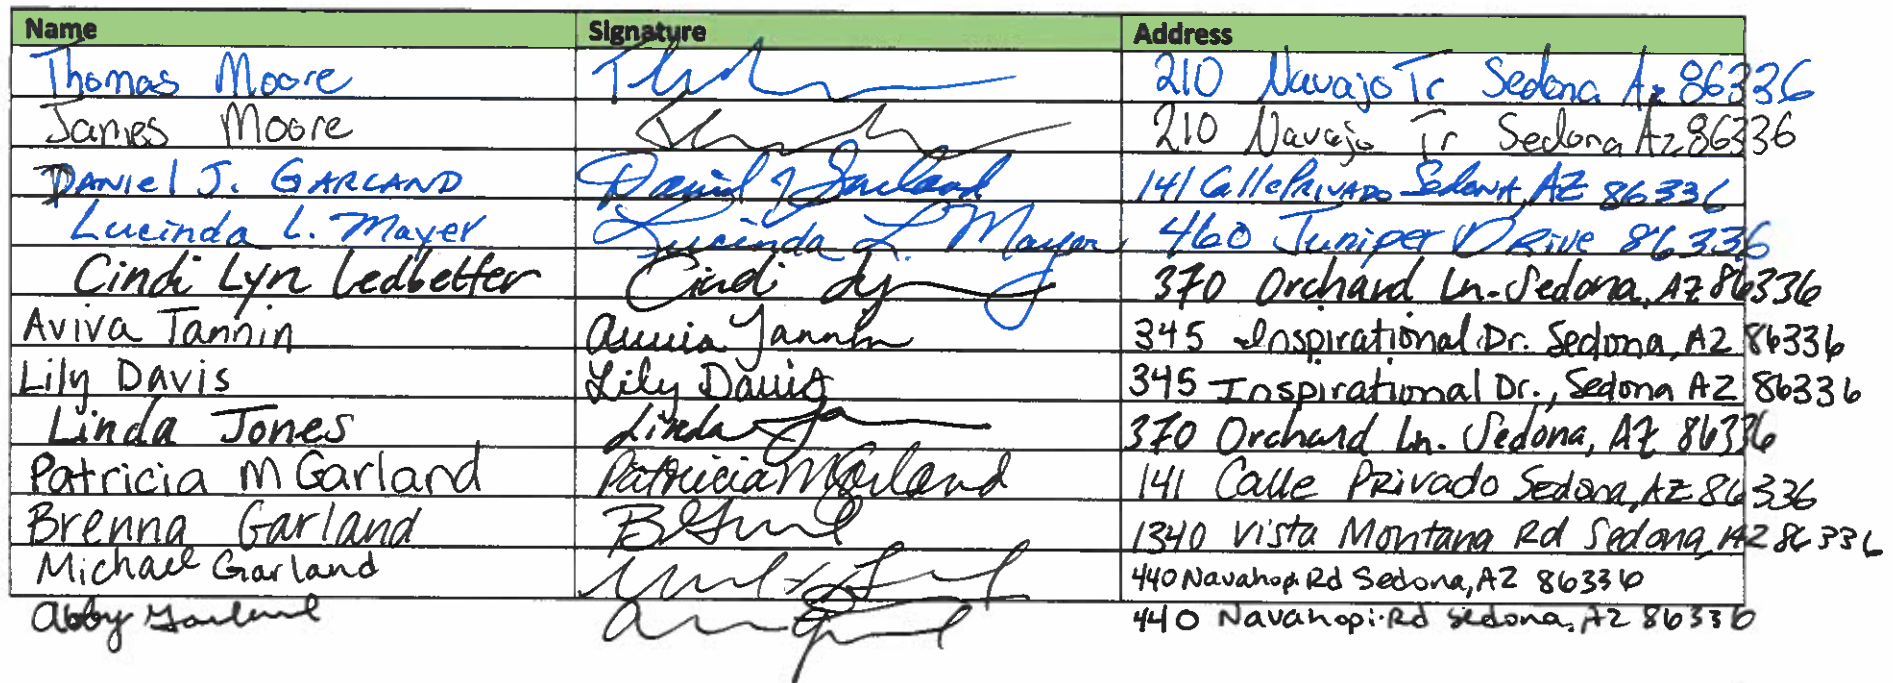 Name Signature Address
Thomas Moore 210 Navajo Tr Sedona Az 86336
James Moore 210 Navajo Tr Sedona Az 86336
DANIEL J. GARLAND Daniel J Garland 141 Calle PRIVADO SedonA, AZ 86336
Lucinda L. Mayer Lucinda L. Mayer 460 Juniper DRive 86336
Cindi Lyn Ledbetter Cindi Ly 370 Orchard Ln. Sedona, AZ 86336
Aviva Tannin Aviva Tannin 345 Inspirational Dr. Sedona, AZ 86336
Lily Davis Lily Davis 345 Inspirational Dr., Sedona AZ 86336
Linda Jones Linda 370 Orchard Ln. Sedona, AZ 86336
Patricia M Garland Patricia M Garland 141 Calle PRivado Sedona, AZ 86336
Brenna Garland 1340 Vista Montana Rd Sedona, AZ 86336
Michael Garland 440 Navahopi Rd Sedona, AZ 86336
Abby Garland 440 Navahopi Rd Sedona, AZ 86336